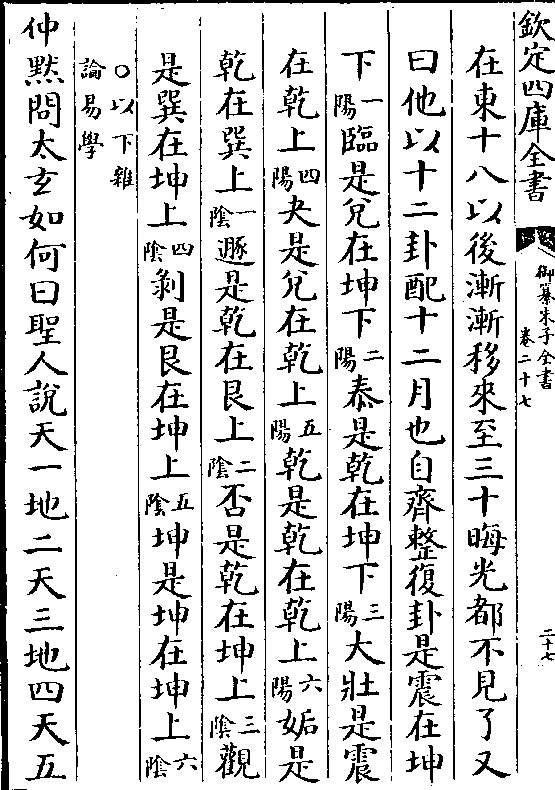 欽定四庫全書
御纂朱子全書
卷二十七
二十七
在東十八以後漸漸移來至三十晦光都不見了又
曰他以十二卦配十二月也自齊整復卦是震在坤
下一陽臨是兌在坤下二陽泰是乾在坤下三陽大壯是震
在乾上四陽夬是兌在乾上五陽乾是乾在乾上六陽姤是
乾在巽上一陰遯是乾在艮上二陰否是乾在坤上三陰觀
是巽在坤上四陰剝是艮在坤上五陰坤是坤在坤上六陰
○以下雜
論易學
仲黙問太玄如何曰聖人說天一地二天三地四天五